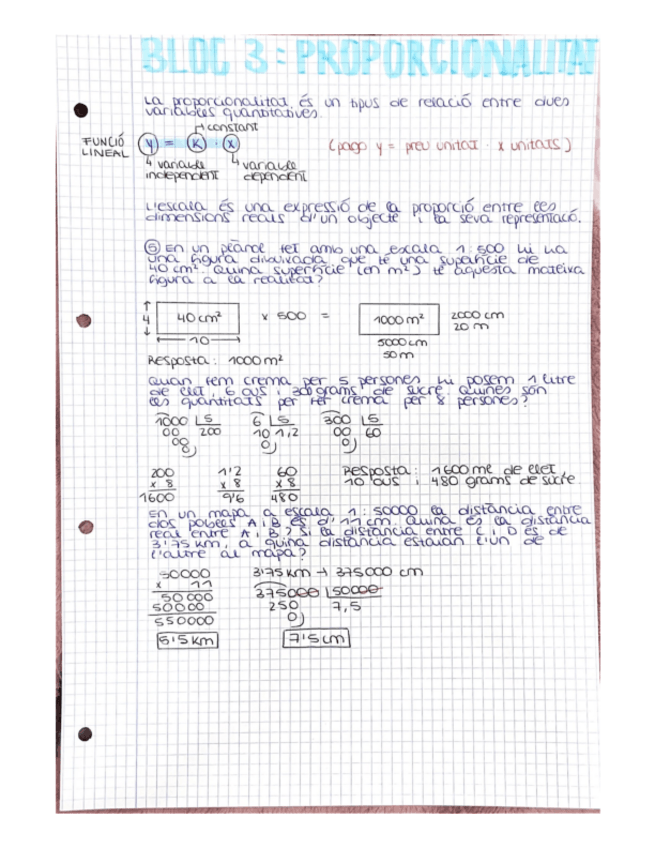 BLOC 3: PROPORCIONALITAT
La proporcionalitat és un tipus de relació entre dues
variables quantitatives.
constant
FUNCIÓ
LINEAL
y = K · x
(pago y = preu unitat · x unitats)
variable
independent
variable
dependent
L'escala és una expressió de la proporció entre les
dimensions reals d'un objecte i la seva representació.
⑤ En un plànol fet amb una escala 1:500 hi ha
una figura dibuixada que té una superfície de
40 cm². Quina superfície (en m²) té aquesta mateixa
figura a la realitat?
4
40 cm²
x 500 =
1000 m²
2000 cm
20 m
10
5000 cm
50 m
Resposta: 1000 m²
Quan fem crema per 5 persones hi posem 1 litre
de llet, 6 ous i 300 grams de sucre. Quines són
les quantitats per fer crema per 8 persones?
1000 5
00 200
00
0
6 5
10 1,2
0
300 5
00 60
0
200
x 8
1600
1'2
x 8
9'6
60
x 8
480
Resposta: 1600 ml de llet
10 ous i 480 grams de sucre
En un mapa a escala 1:50000 la distància entre
dos pobles A i B és d'11 cm. Quina és la distància
real entre A i B? Si la distància entre C i D és de
3'75 km, a quina distància estaran l'un de
l'altre al mapa?
50000
x 11
50000
50000
550000
5'5 km
3'75 km → 375000 cm
375000 50000
250 7,5
0
7'5 cm